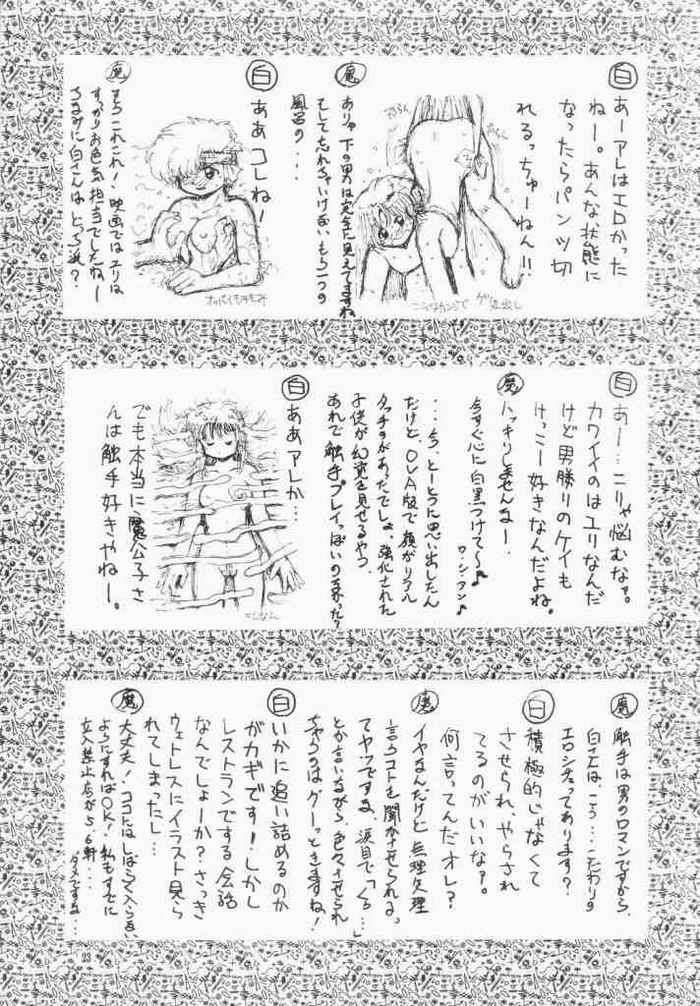 白
あーアレはエロかった
ねー。あんな状態に
なったらパンツ切
れるっちゅーねん!!
魔
ありゃ下の男は完全に見えてますね
そして忘れちゃいけない、もう一つの
風呂の・・・
白
ああコレね!
魔
そうこれこれ!映画ではユリは
すっかりお色気担当でしたねー
ちなみに白さんはどっち派?
白
あー・・・こりゃ悩むなァ。
カワイイのはユリなんだ
けど男勝りのケイも
けっこー好きなんだよね。
魔
ハッキリしませんなー・・
今すぐ心に白黒つけて〜♪
・・・今、とーとつに思い出したん
だけど、OVA版で顔がリアル
タッチのがあったでしょ、強化された
子供が幻覚を見せるやつ、
あれで触手プレイっぽいの
白
ああアレか・・・
でも本当に魔公子さ
んは触手好きやねー。
魔
触手は男のロマンですから、
白さんはこう・・・こだわりの
エロシチュってあります?
白
積極的じゃなくて
させられ、やらされ
てるのがいいなァ。
何言ってんだオレ?
魔
イヤなんだけど無理矢理
言うコトを聞かせられる、
てヤツですね、涙目で「くぅ…」
とか言いながら色々させられ
ちゃうのはグーっときますね!
白
いかに追い詰めるのか
がカギです!しかし
レストランでする会話
なんでしょーか?さっき
ウェトレスにイラスト見ら
れてしまったし・・
魔
大丈夫!ココにはしばらく入らない
ようにすればOK!私もすでに
立入禁止店が5、6軒・・・
ダメですな・・・
33